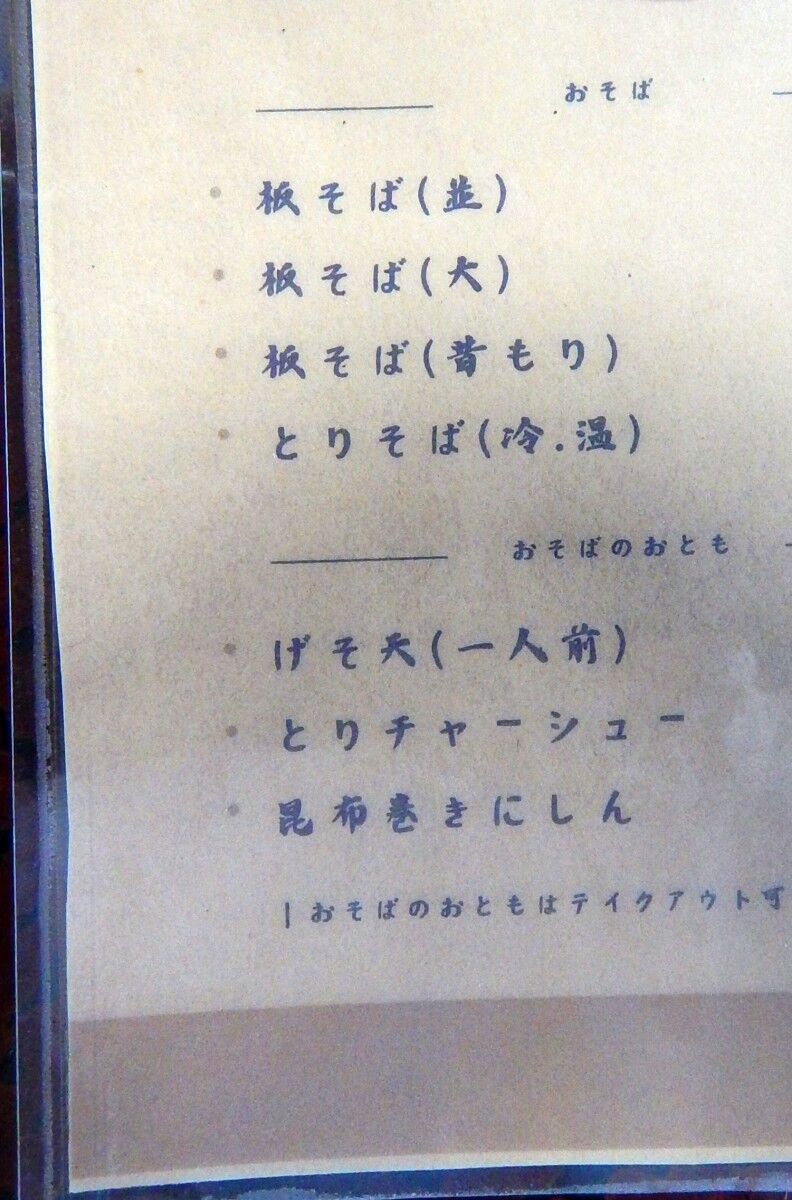 おそば
・板そば(並)
・板そば(大)
・板そば(昔もり)
・とりそば(冷.温)
おそばのおとも
・げそ天(一人前)
・とりチャーシュー
・昆布巻きにしん
|おそばのおともはテイクアウト可